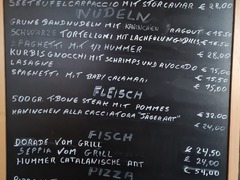 SEETEUFELCARPACCIO MIT STÖRCAVIAR € 28,00
NUDELN
GRÜNE BANDNUDELN MIT KANINCHEN RAGOUT € 15,50
SCHWARZE TORTELLONI MIT LACHSFÜLLUNG
SPAGHETTI MIT 1/2 HUMMER € 28,00
KÜRBIS GNOCCHI MIT SCHRIMPS UND AVOCADO € 15,50
LASAGNE €
SPAGHETTI MIT BABY CALAMARI € 15,50
FLEISCH
500 GR. T-BONE STEAK MIT POMMES € 32,00
KANINCHEN ALLA CACCIATORA "JÄGERART" € 24,00
FISCH
DORADE VOM GRILL € 24,50
SEPPIA VOM GRILL € 24,00
HUMMER CATALANISCHE ART € 54,00
PIZZA